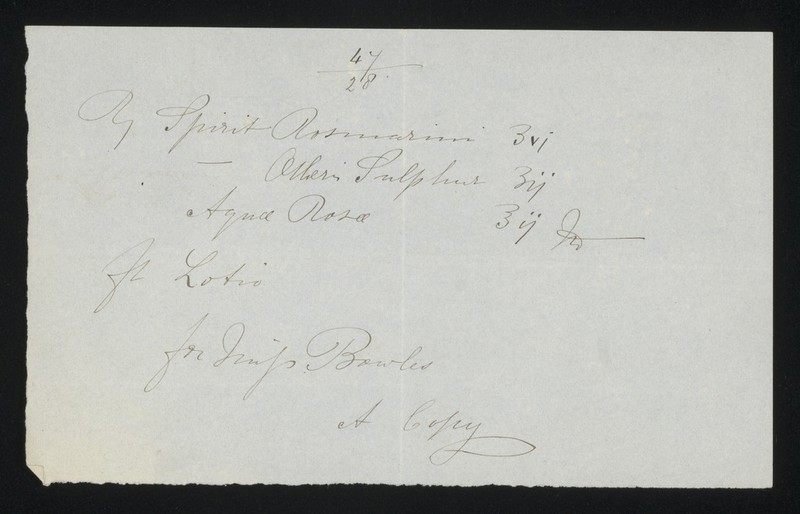 47
28
℞ Spirit Rosmarini ʒvj
— Ætheris Sulphur ʒij
Aquæ Rosæ ʒij
ft Lotio
for Miss Bowles
A Copy